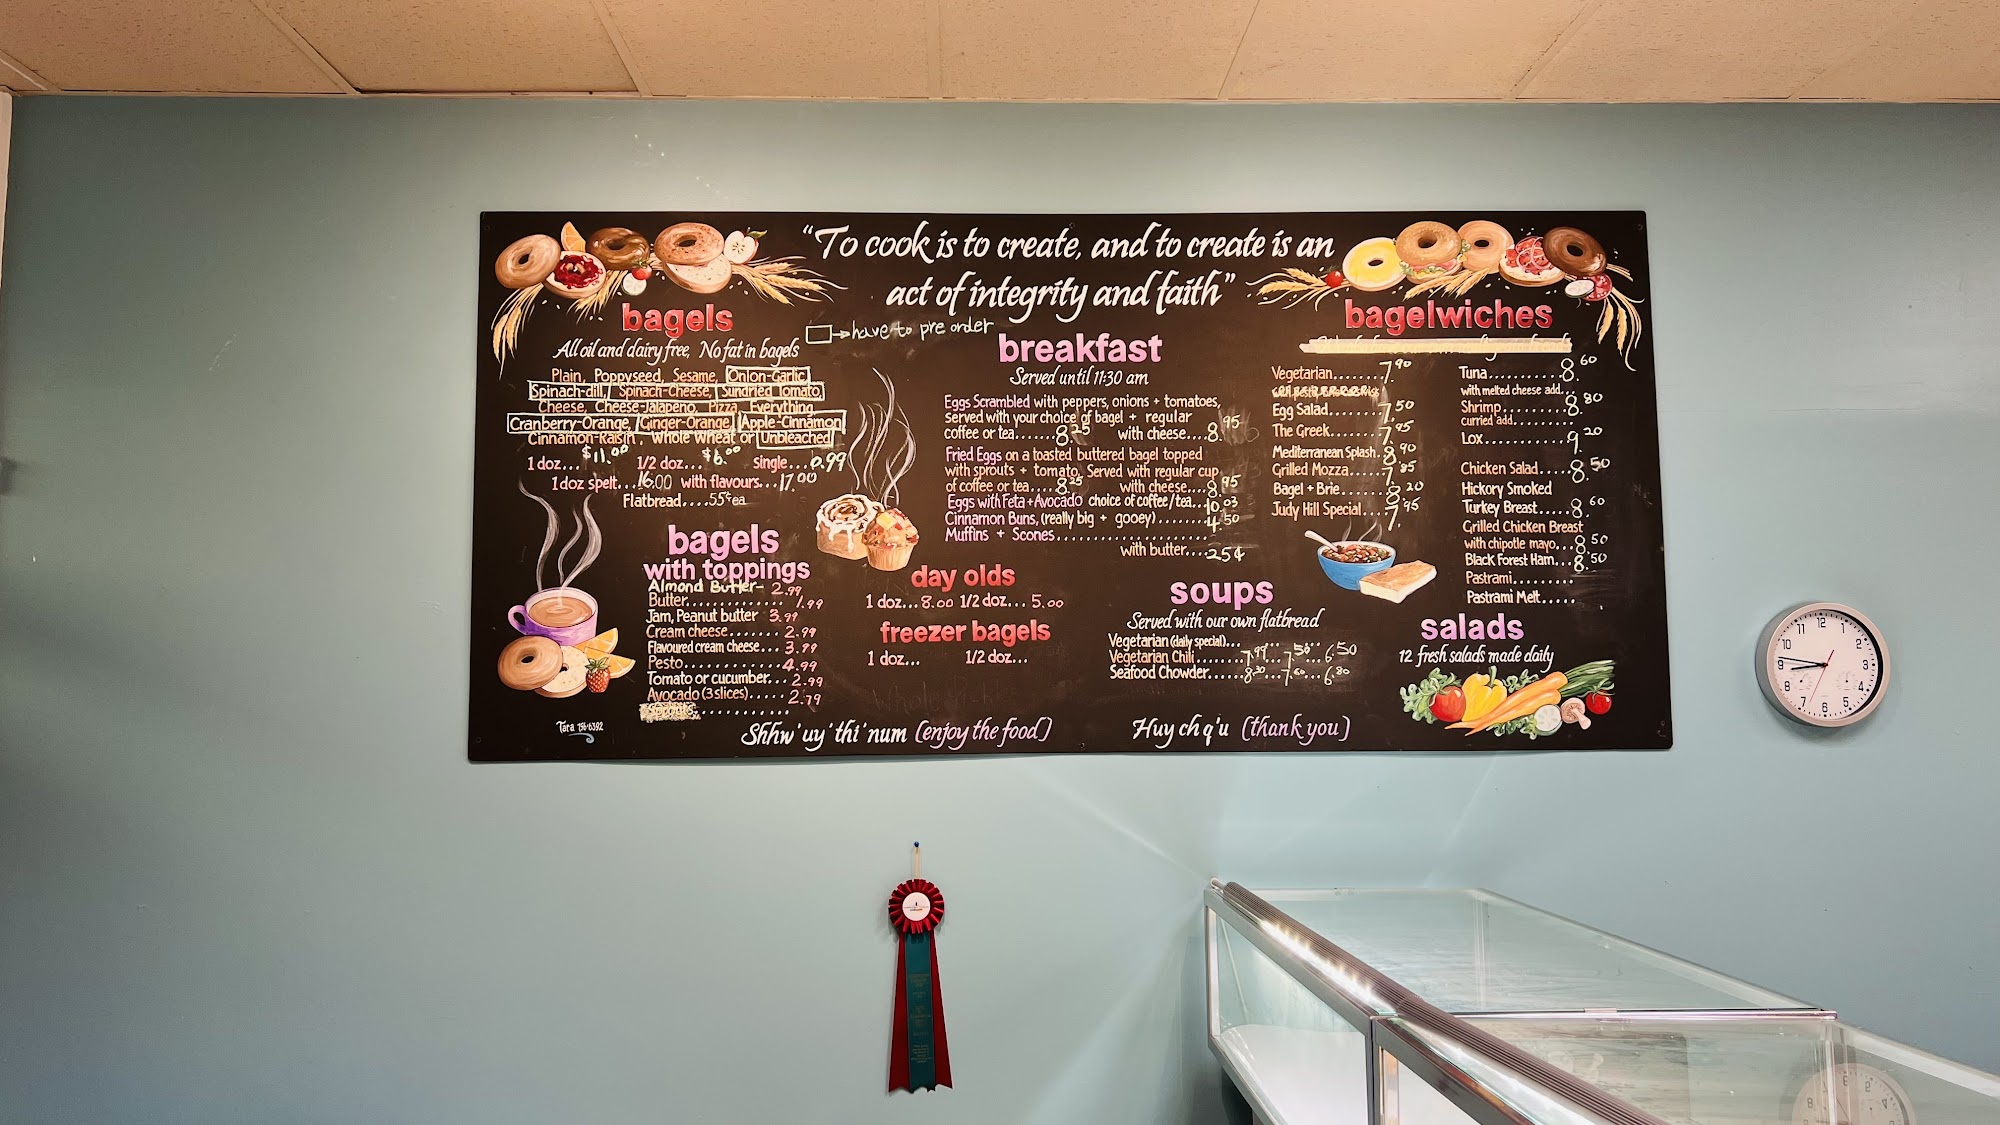 "To cook is to create, and to create is an
act of integrity and faith"
bagels
All oil and dairy free, No fat in bagels
Plain, Poppyseed, Sesame, Onion-Garlic,
Spinach-dill, Spinach-Cheese, Sundried Tomato,
Cheese, Cheese-Jalapeno, Pizza, Everything
Cranberry-Orange, Ginger-Orange, Apple-Cinnamon,
Cinnamon-Raisin, Whole Wheat or Unbleached
1 doz... $11.00 1/2 doz... $6.00 single... 0.99
1 doz spelt... 16.00 with flavours... 17.00
Flatbread.... .55¢ ea
have to pre order
bagels
with toppings
Almond Butter- 2.99
Butter............. 1.99
Jam, Peanut butter 3.99
Cream cheese....... 2.99
Flavoured cream cheese... 3.99
Pesto............. 4.99
Tomato or cucumber... 2.99
Avocado (3 slices)..... 2.79
Tara 756-6392
breakfast
Served until 11:30 am
Eggs Scrambled with peppers, onions + tomatoes,
served with your choice of bagel + regular
coffee or tea...... 8.25 with cheese.... 8.95
Fried Eggs on a toasted buttered bagel topped
with sprouts + tomato. Served with regular cup
of coffee or tea.... 8.25 with cheese.... 8.95
Eggs with Feta + Avocado choice of coffee/tea... 10.03
Cinnamon Buns, (really big + gooey)........ 4.50
Muffins + Scones......................
with butter.... 25¢
day olds
1 doz... 8.00 1/2 doz... 5.00
freezer bagels
1 doz... 1/2 doz...
soups
Served with our own flatbread
Vegetarian (daily special)...
Vegetarian Chili....... 7.99... 7.50... 6.50
Seafood Chowder...... 8.20... 7.60... 6.80
Shhw'uy'thi'num (enjoy the food)
Huy ch q'u (thank you)
bagelwiches
Vegetarian........ 7.90
Egg Salad........ 7.50
The Greek........ 7.95
Mediterranean Splash. 8.90
Grilled Mozza...... 7.85
Bagel + Brie....... 8.20
Judy Hill Special.... 7.95
Tuna........... 8.60
with melted cheese add...
Shrimp......... 8.80
curried add..........
Lox........... 9.20
Chicken Salad..... 8.50
Hickory Smoked
Turkey Breast..... 8.60
Grilled Chicken Breast
with chipotle mayo... 8.50
Black Forest Ham... 8.50
Pastrami.........
Pastrami Melt.....
salads
12 fresh salads made daily
12
1
2
3
4
5
6
7
8
9
10
11